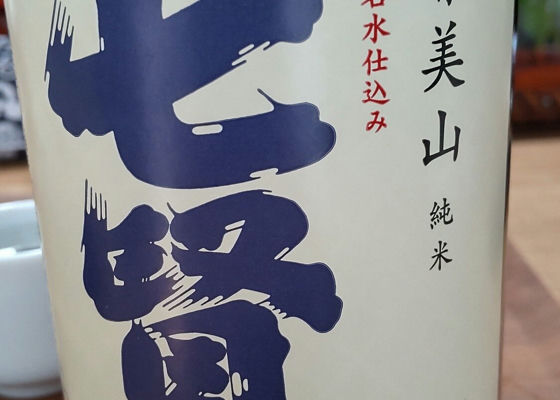 美山 純米
名水仕込み
七賢